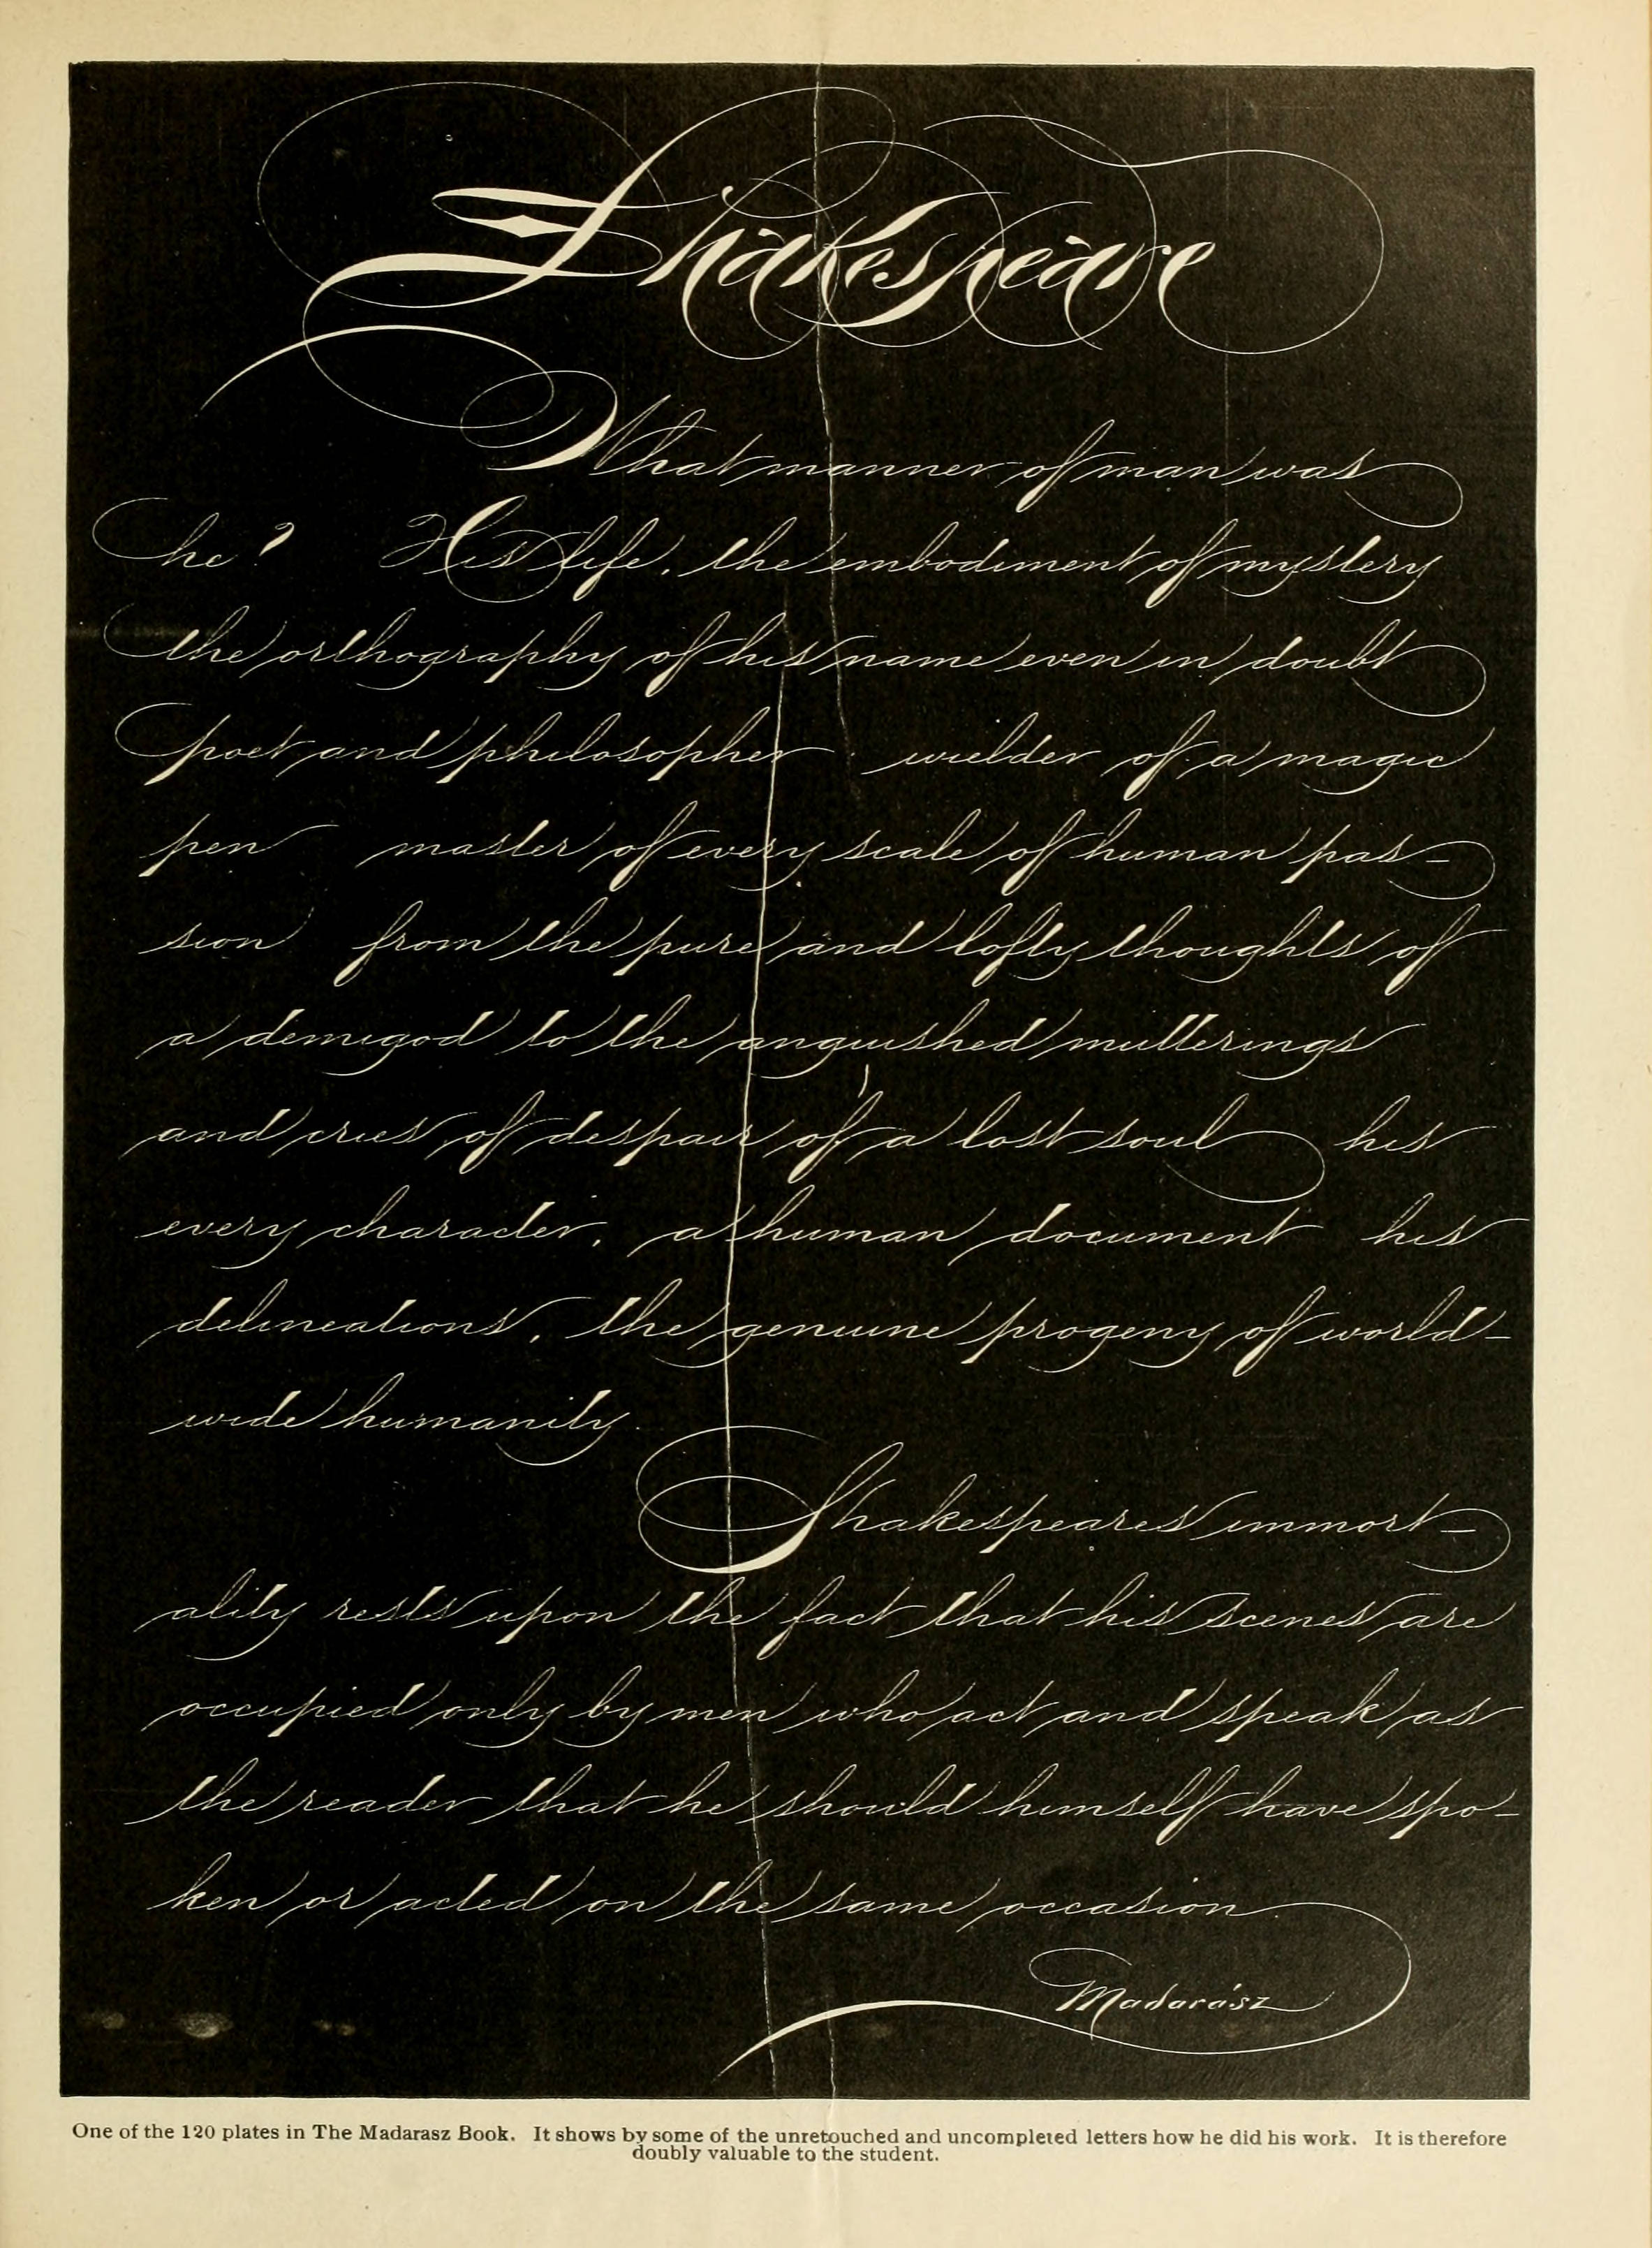 Shakespeare
What manner of man was
he? His life, the embodiment of mystery
the orthography of his name even in doubt
poet and philosopher wielder of a magic
pen master of every scale of human pas-
sion from the pure and lofty thoughts of
a demigod to the anguished mutterings
and cries of despair of a lost soul his
every character, a human document his
delineations, the genuine progeny of world-
wide humanity.
Shakespeares immort-
ality rests upon the fact that his scenes are
occupied only by men who act and speak as
the reader that he should himself have spo-
ken or acted on the same occasion
Madarász
One of the 120 plates in The Madarasz Book. It shows by some of the unretouched and uncompleted letters how he did his work. It is therefore
doubly valuable to the student.